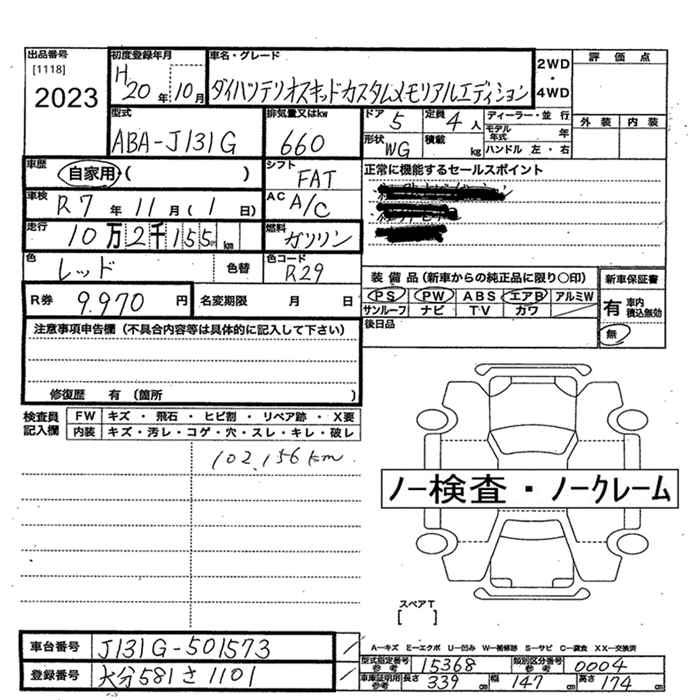 出品番号
[1118]
2023
初度登録年月
H 20 年 10 月
車名・グレード
ダイハツテリオスキッドカスタムメモリアルエディション
2WD
・
4WD
評 価 点
外 装 内 装
型式
ABA-J131G
排気量又はkw
660
ドア
5
定員
4 人
ディーラー・並 行
モデル年式 年
ハンドル 左 ・ 右
形状
WG
積載
kg
車歴
自家用・( )
シフト
FAT
正常に機能するセールスポイント
車検
R 7 年 11 月 ( 1 日)
AC
A/C
走行
10 万 2 千 155 km
燃料
ガソリン
色
レッド
色替
色コード
R29
R券
9.970 円
名変期限 月 日
装 備 品 (新車からの純正品に限り○印)
PS PW ABS エアB アルミW
サンルーフ ナビ TV カワ
新車保証書
有 車内積込無効
無
後日品
注意事項申告欄(不具合内容等は具体的に記入して下さい)
修復歴 有 (箇所 )
検査員記入欄
FW キズ ・ 飛石 ・ ヒビ割 ・ リペア跡 ・ X要
内装 キズ・汚レ・コゲ・穴・スレ・キレ・破レ
102,156km
ノー検査・ノークレーム
スペアT
[ ]
車台番号
J131G-501573
登録番号
大分581さ1101
A—キズ E—エクボ U—凹み W—補修跡 S—サビ C—腐食 XX—交換済
型式指定番号参考 15368 類別区分番号参考 0004
車庫証明用参考 長さ 339 cm 幅 147 cm 高さ 174 cm